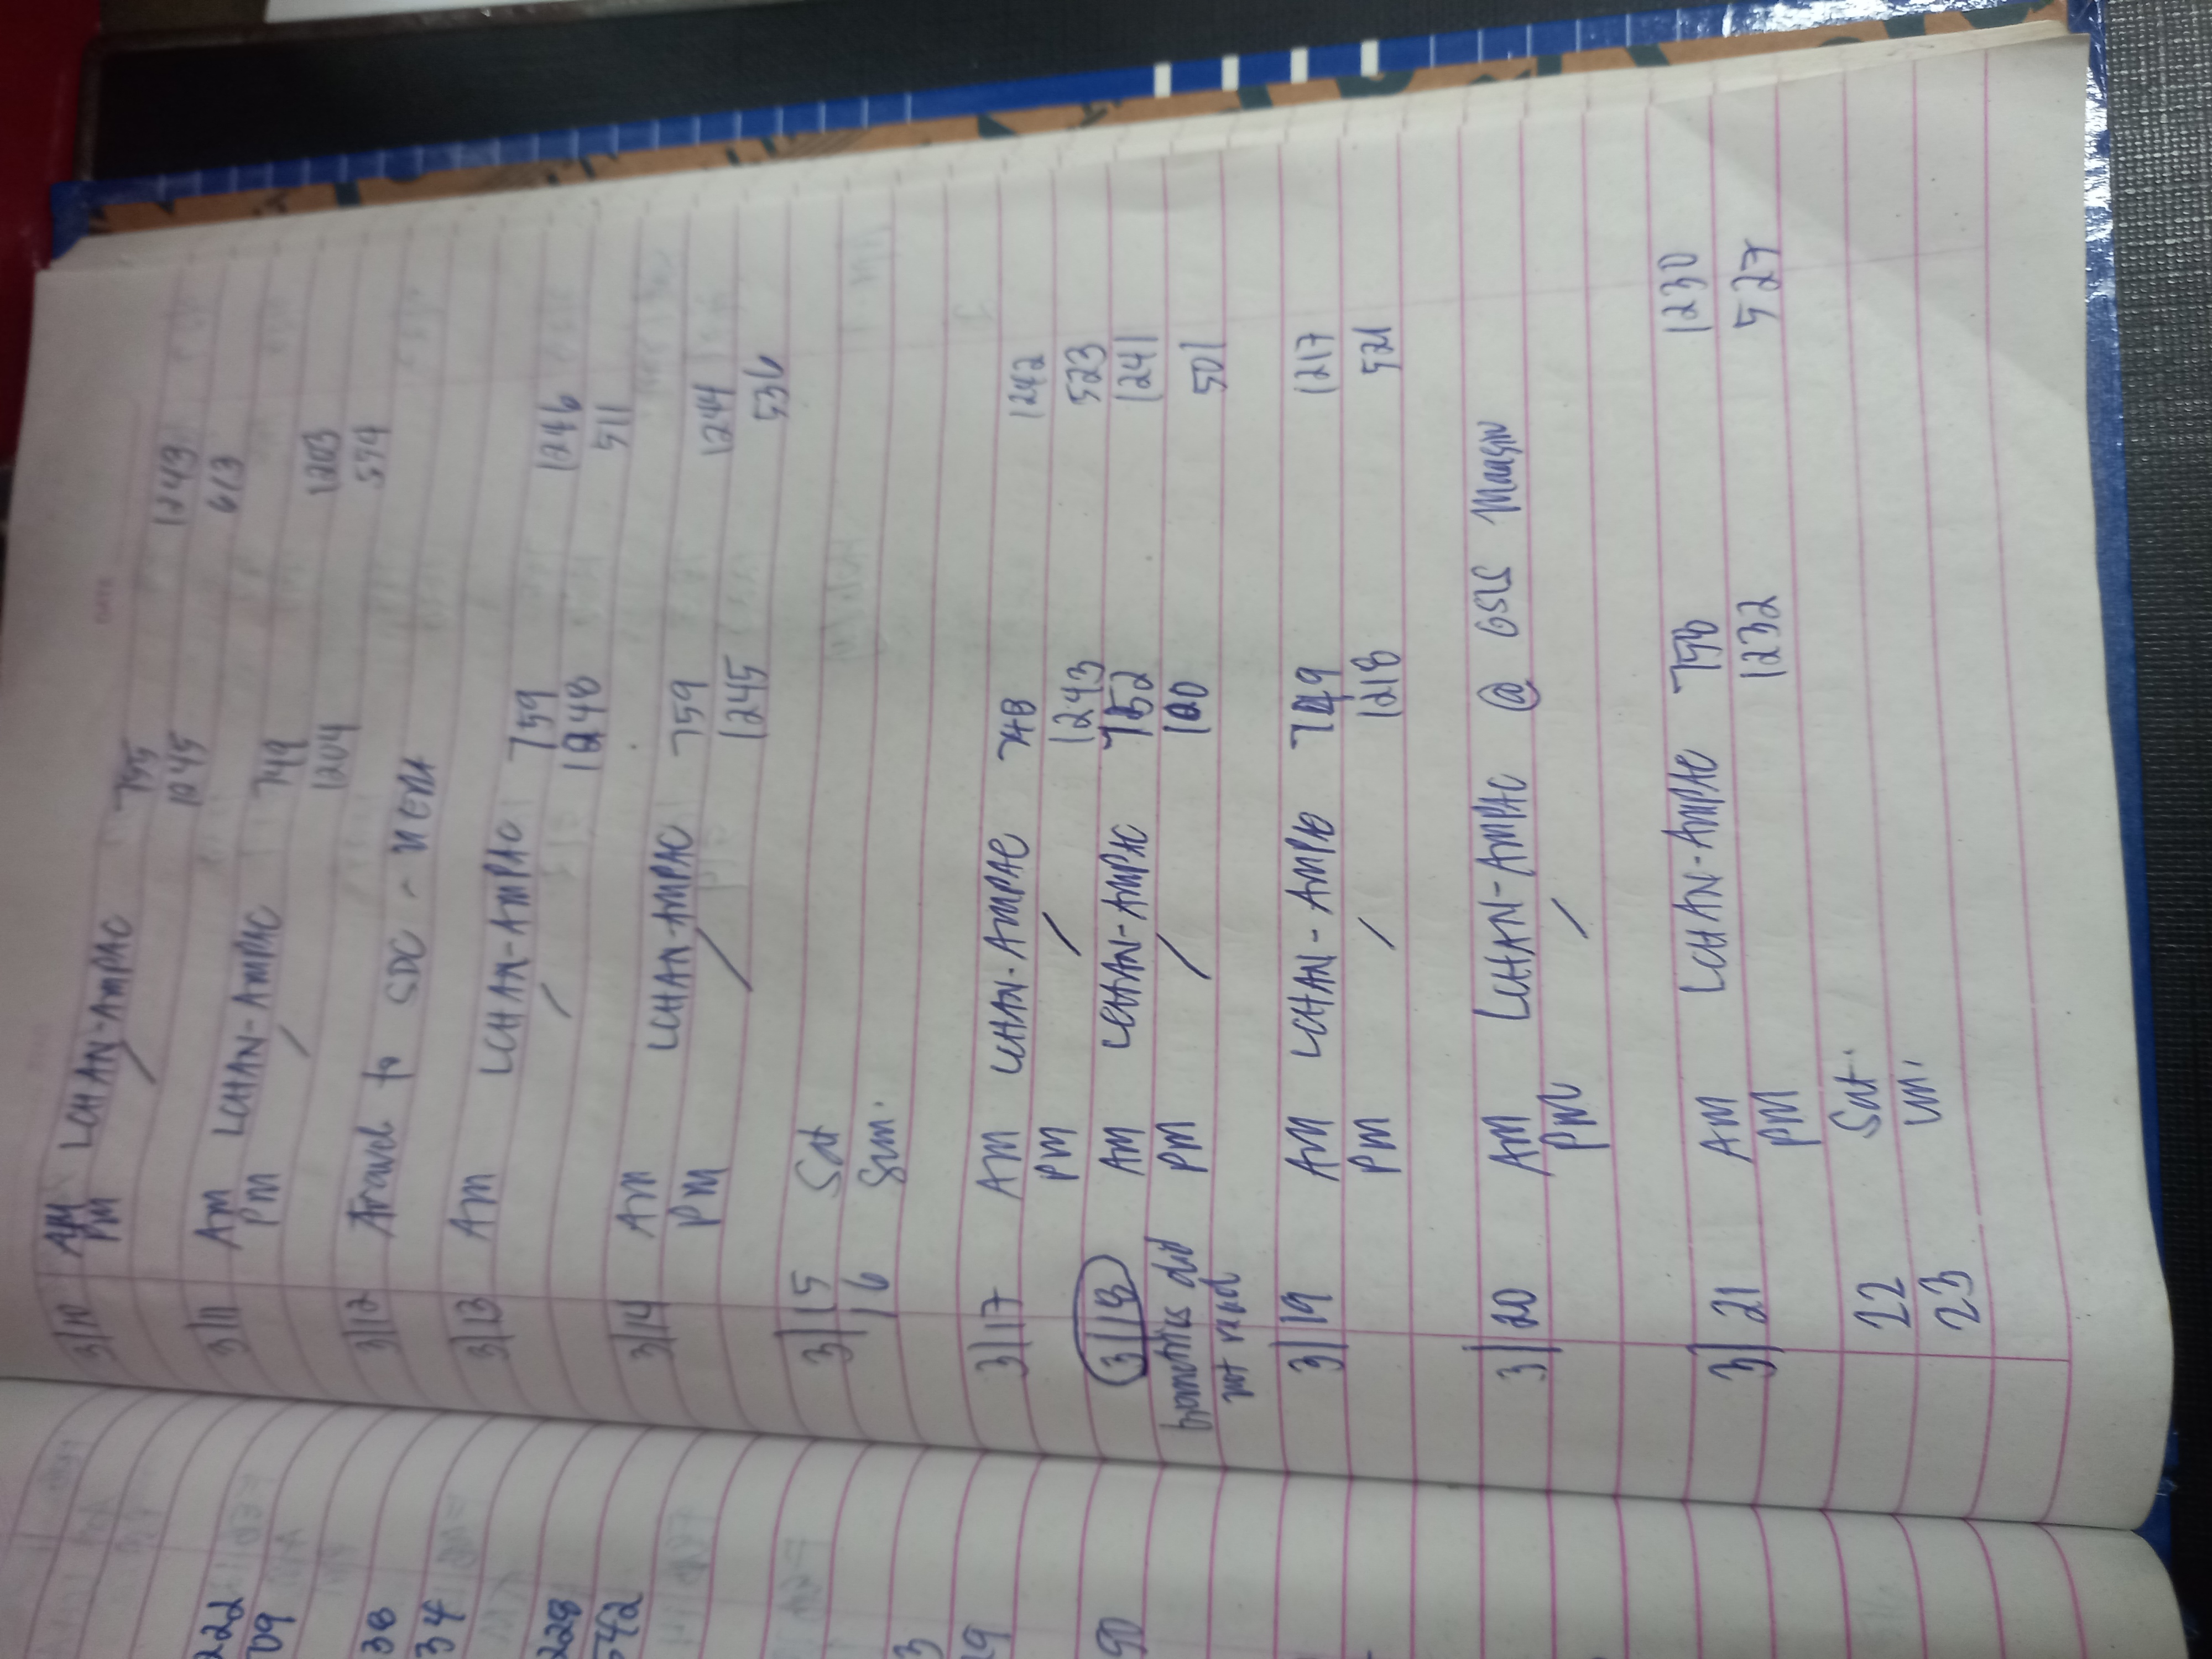 DATE
3/10 AM LCHAN-AMPAC 755 1243
PM / 1245 613
3/11 AM LCHAN-AMPAC 749 1203
PM / 1204 594
3/12 Travel to SDC -
3/13 AM LCHAN-AMPAC 759 1246
/ 1248 511
3/14 AM LCHAN-AMPAC 759 1244
PM / 1245 536
3/15 Sat
16 Sun.
3/17 AM LCHAN-AMPAC 748 1242
PM / 1243 523
3/18 AM LCHAN-AMPAC 752 1241
biometrics did PM / 100 501
not read
3/19 AM LCHAN-AMPAC 749 1217
PM / 1218 521
3/20 AM LCHAN-AMPAC @ GSIS Maasin
PM /
3/21 AM LCHAN-AMPAC 758 1230
PM 1232 527
22 Sat.
23 un.
222
09
38
34
228
542
3
19
50